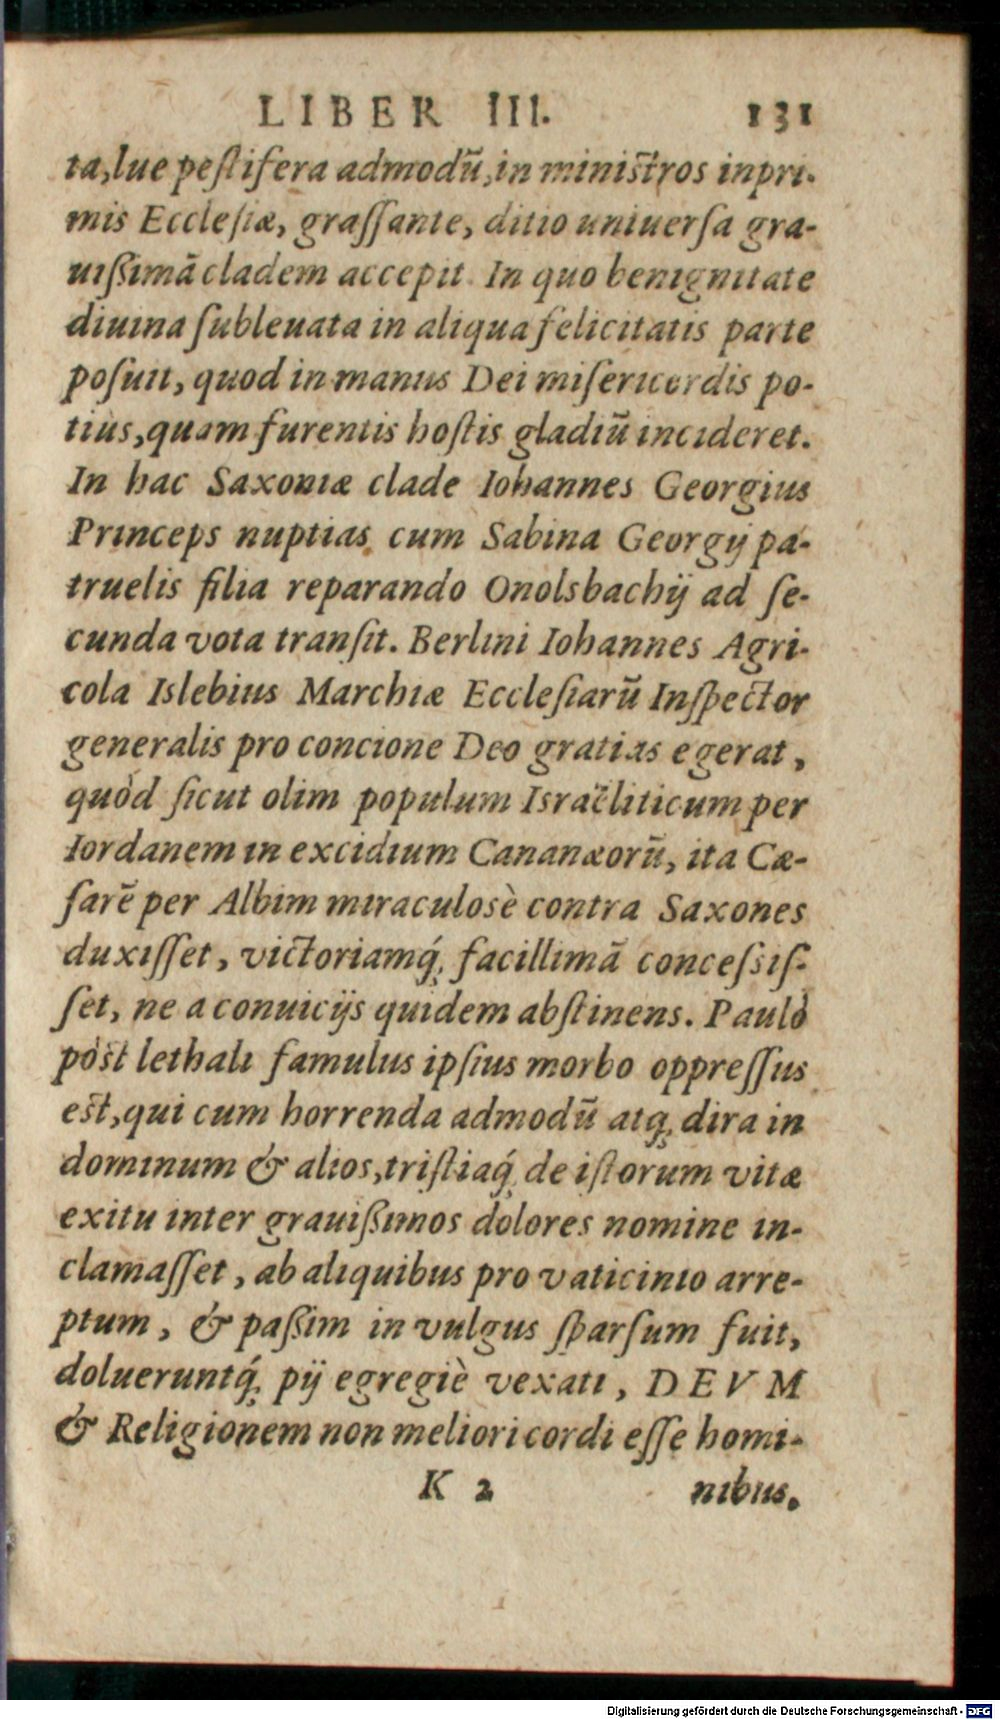 LIBER III. 131
ta, lue pestifera admodū, in ministros inpri-
mis Ecclesiæ, grassante, ditio uniuersa gra-
uißimā cladem accepit. In quo benignitate
diuina subleuata in aliqua felicitatis parte
posuit, quod in manus Dei misericordis po-
tiùs, quam furentis hostis gladiū incideret.
In hac Saxoniæ clade Iohannes Georgius
Princeps nuptias cum Sabina Georgij pa-
truelis filia reparando Onolsbachij ad se-
cunda vota transit. Berlini Iohannes Agri-
cola Islebius Marchiæ Ecclesiarū Inspector
generalis pro concione Deo gratias egerat,
quòd sicut olim populum Israëliticum per
Iordanem in excidium Cananæorū, ita Cæ-
sarē per Albim miraculosè contra Saxones
duxisset, victoriamq́; facillimā concessis-
set, ne a conuicijs quidem abstinens. Paulò
pòst lethali famulus ipsius morbo oppressus
est, qui cum horrenda admodū atq; dira in
dominum & alios, tristiaq́; de istorum vitæ
exitu inter grauißimos dolores nomine in-
clamasset, ab aliquibus pro vaticinio arre-
ptum, & paßim in vulgus sparsum fuit,
doluerúntq́; pij egregiè vexati, DEVM
& Religionem non meliori cordi esse homi-
K 2 nibus.
Digitalisierung gefördert durch die Deutsche Forschungsgemeinschaft - DFG